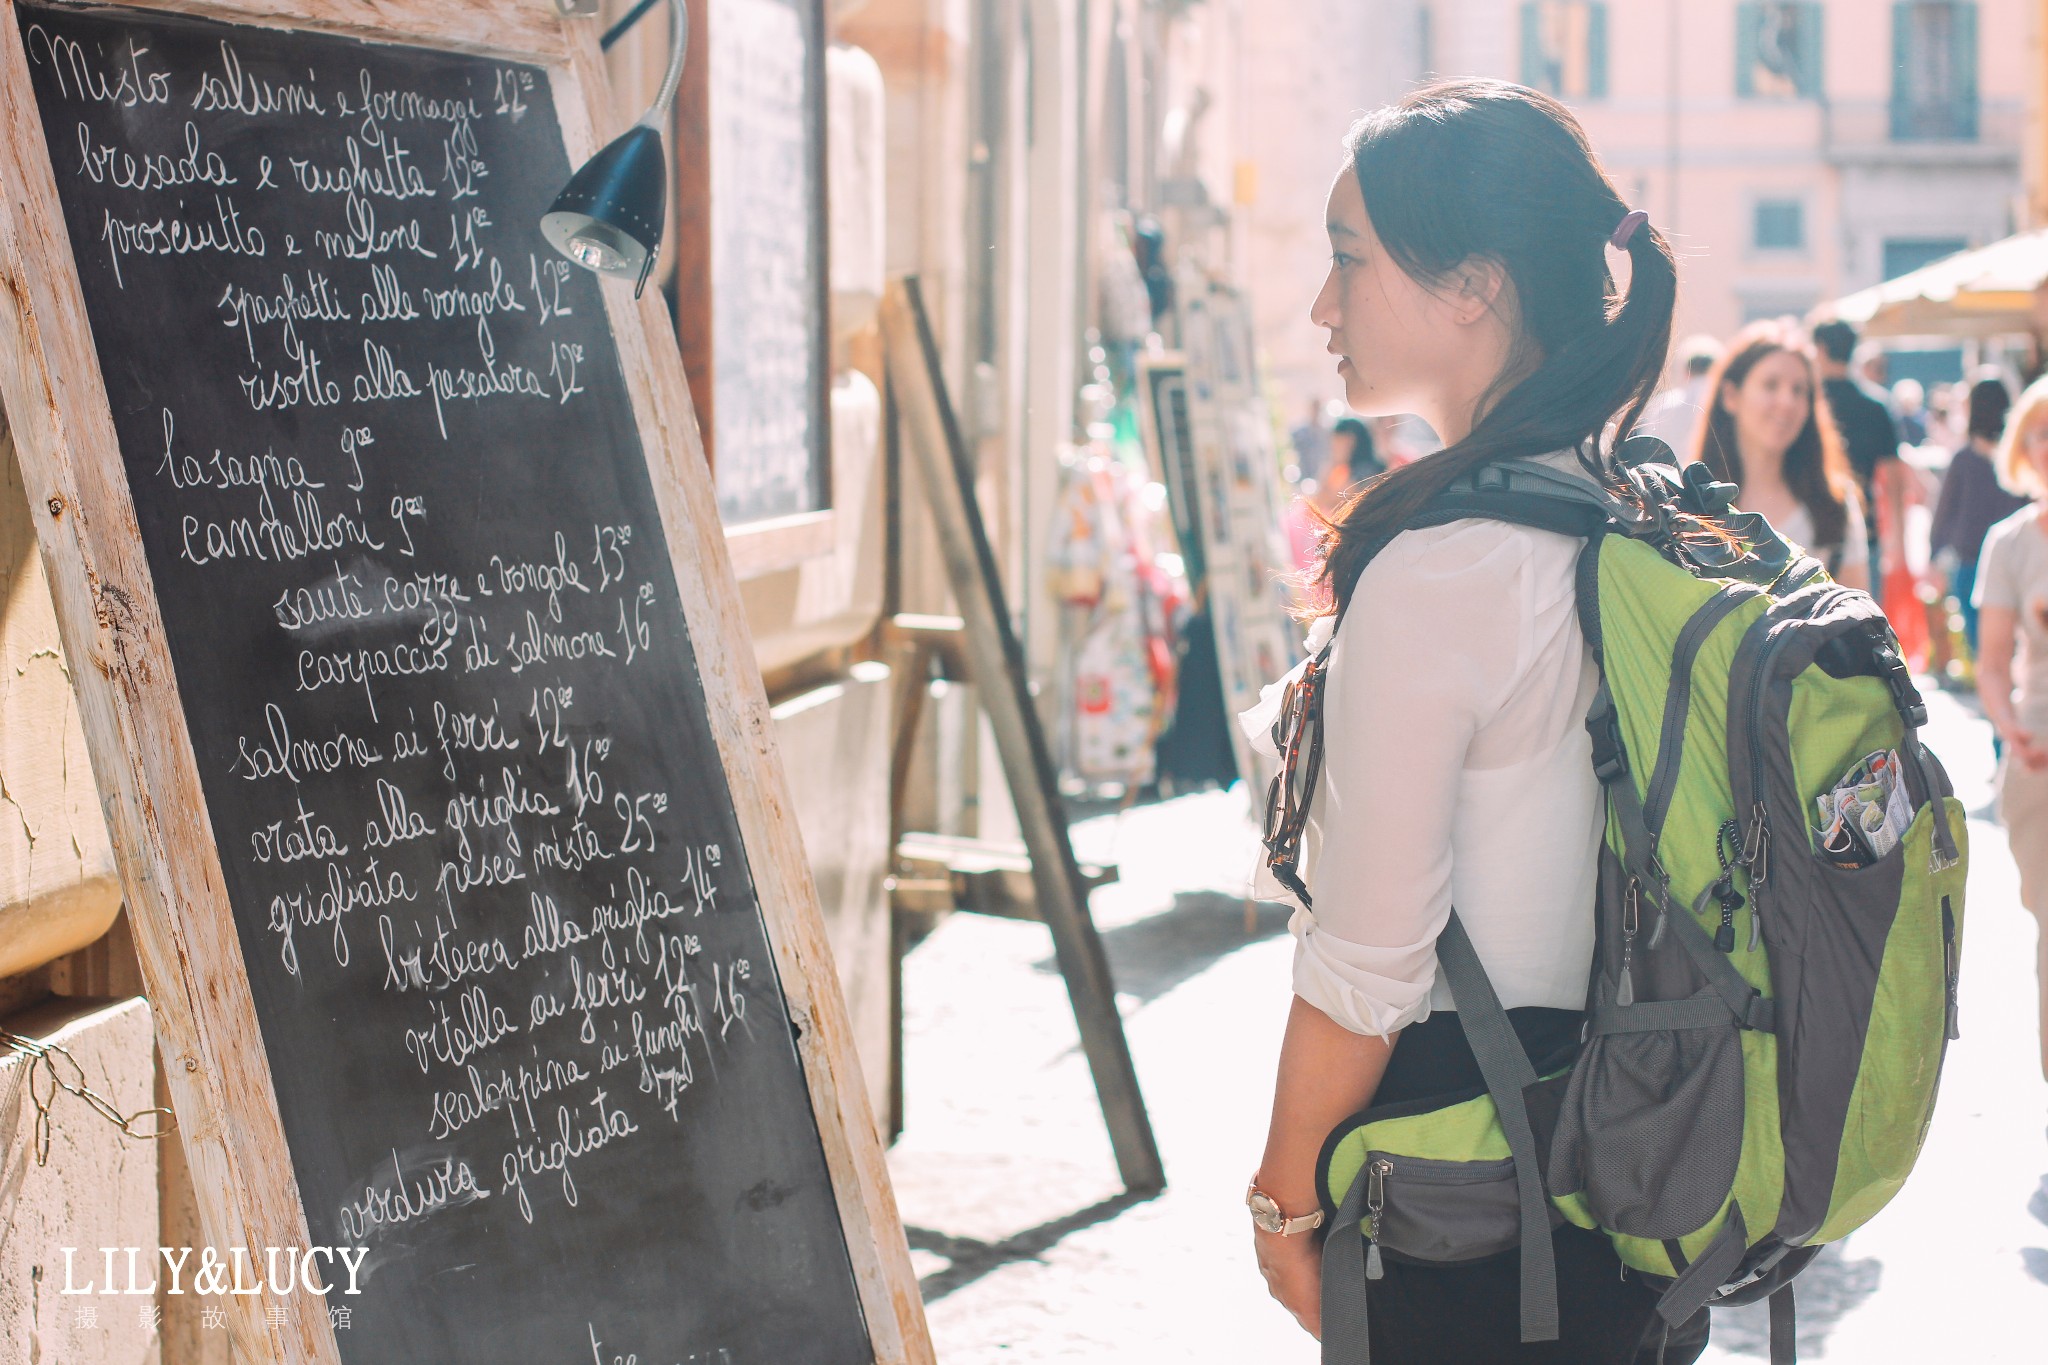 Misto salumi e formaggi 12⁰⁰
bresaola e rughetta 12⁰⁰
prosciutto e melone 11⁰⁰
spaghetti alle vongole 12⁰⁰
risotto alla pescatora 12⁰⁰
lasagna 9⁰⁰
cannelloni 9⁰⁰
sautè cozze e vongole 13⁰⁰
carpaccio di salmone 16⁰⁰
salmone ai ferri 12⁰⁰
orata alla griglia 16⁰⁰
grigliata pesce mista 25⁰⁰
bistecca alla griglia 14⁰⁰
vitella ai ferri 12⁰⁰
scaloppina ai funghi 16⁰⁰
verdura grigliata 7⁰⁰
LILY&LUCY
摄影故事馆